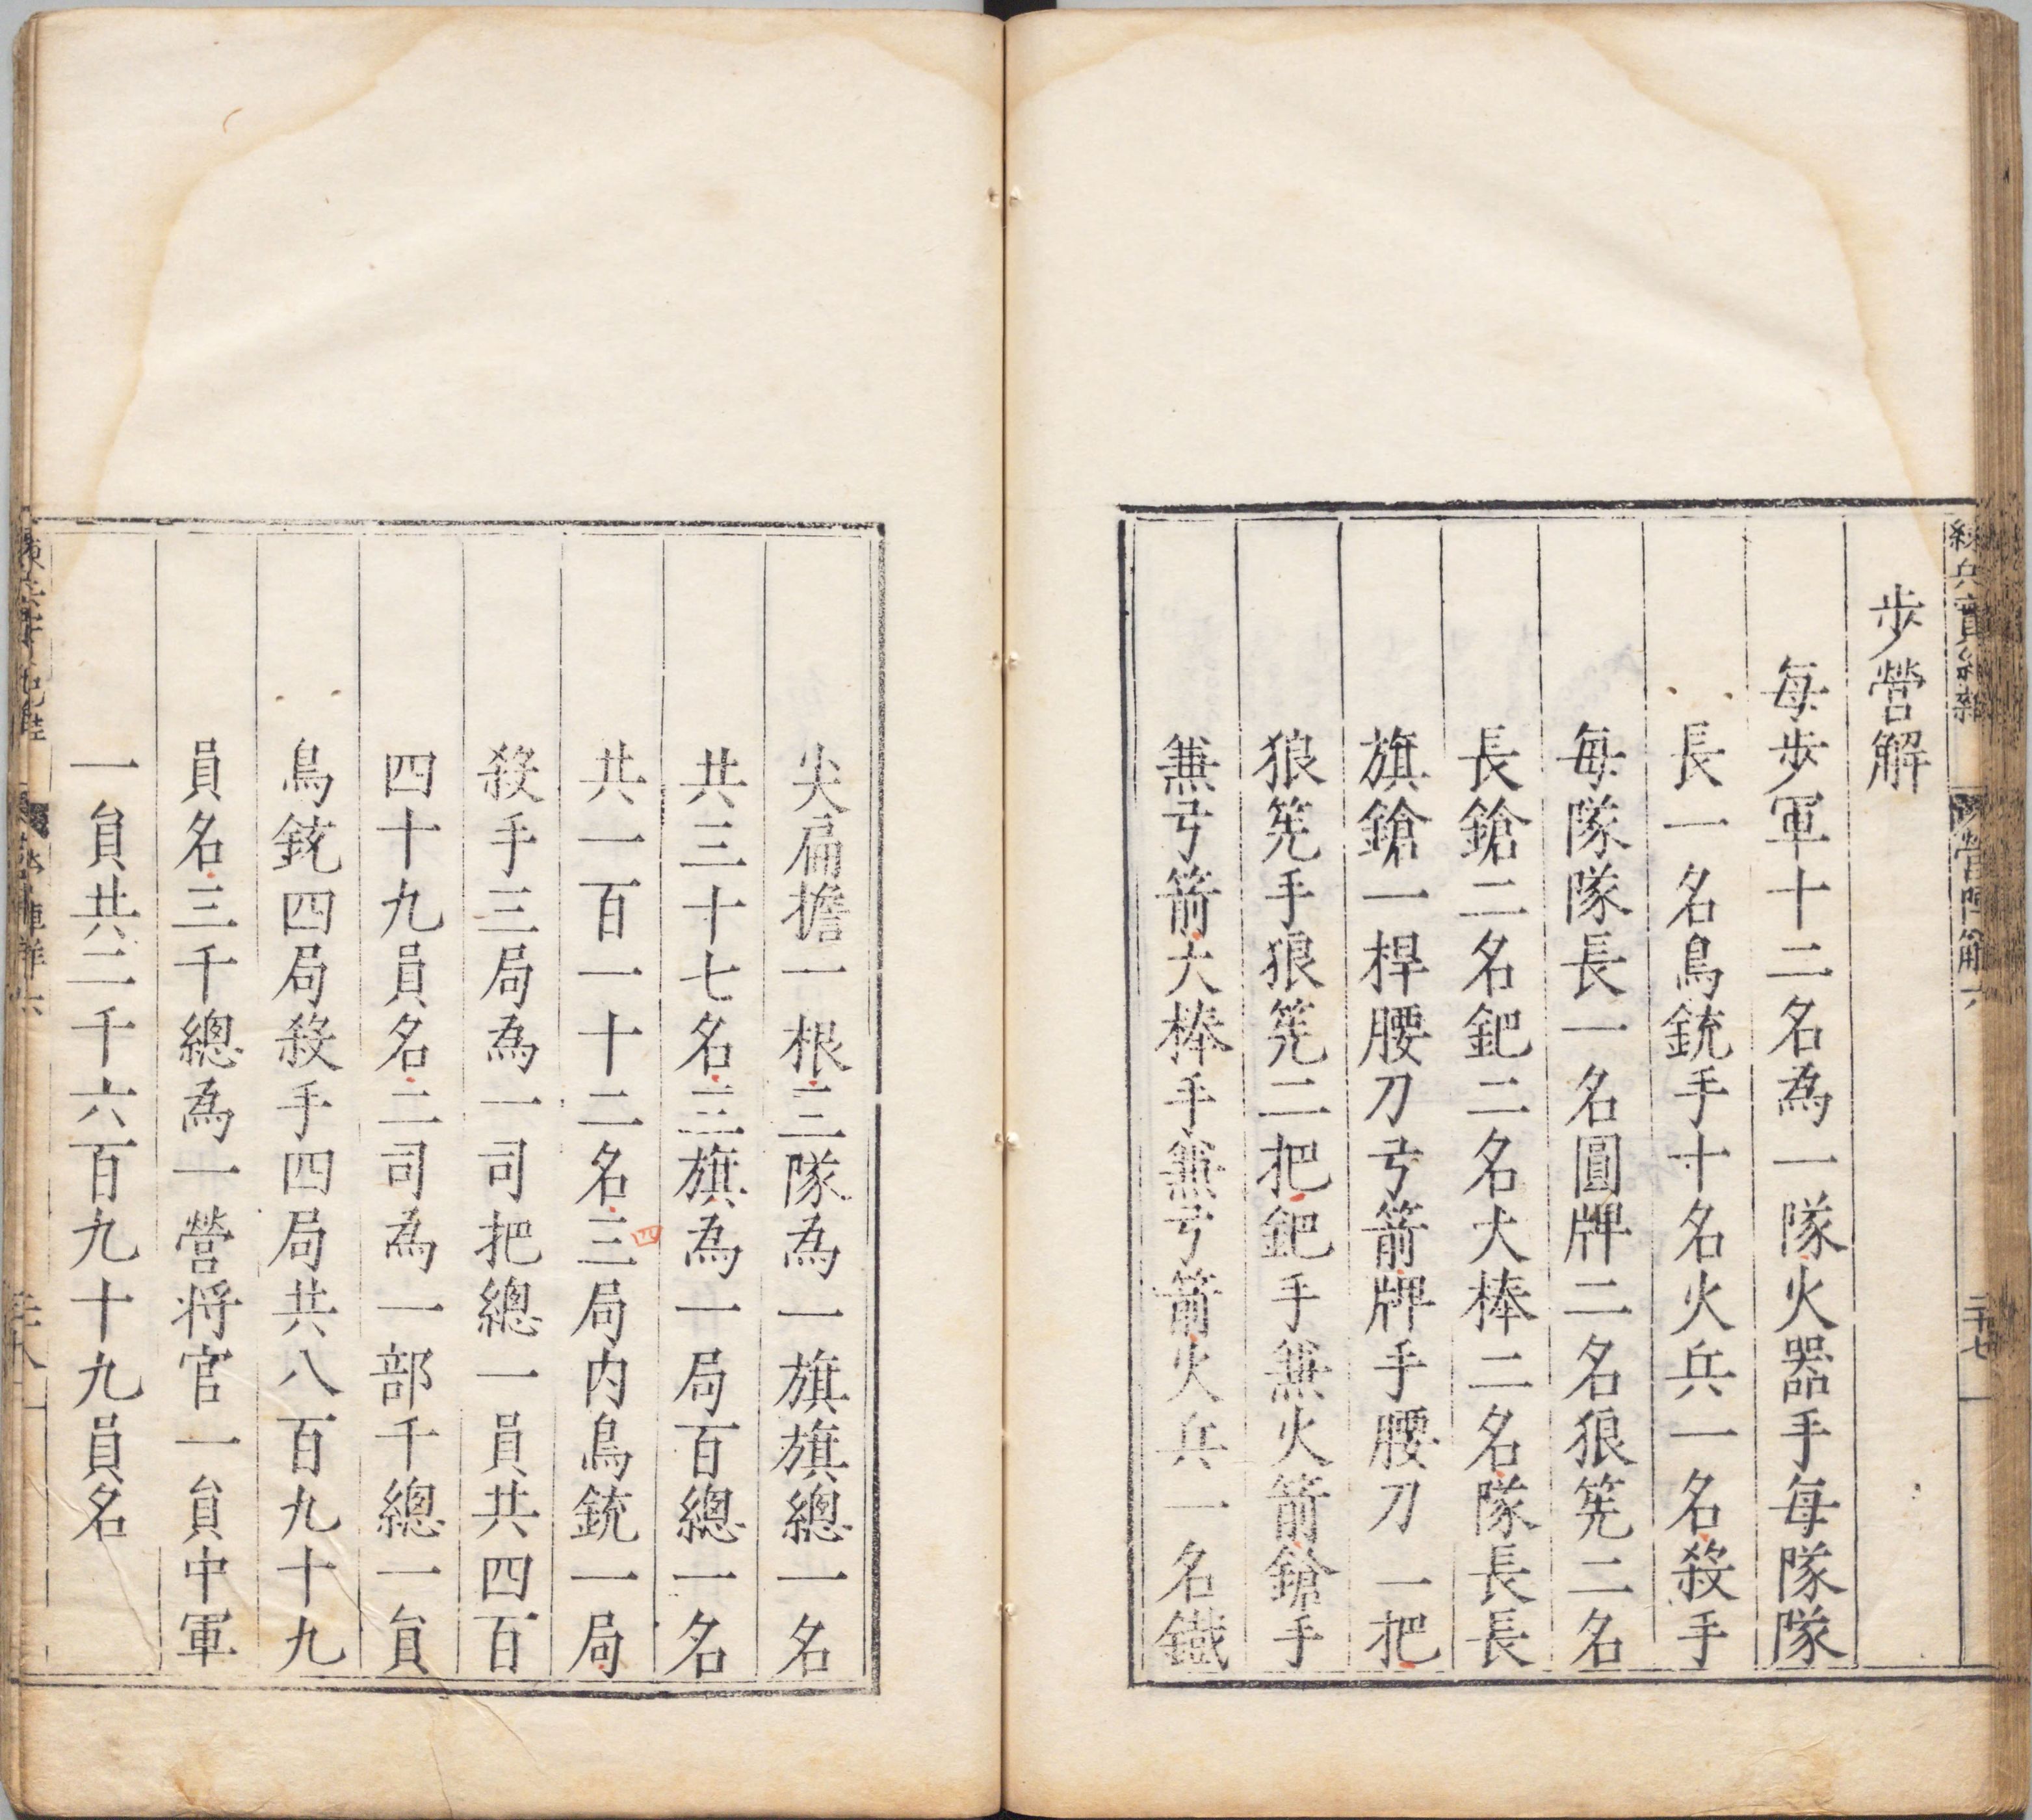 步營解
每步軍十二名為一隊火器手每隊隊
長一名鳥銃手十名火兵一名殺手
每隊隊長一名圓牌二名狼筅二名
長鎗二名鈀二名大棒二名隊長長
旗鎗一桿腰刀弓箭牌手腰刀一把
狼筅手狼筅二把鈀手兼火箭鎗手
兼弓箭大棒手兼弓箭火兵一名鐵
尖扁擔一根三隊為一旗旗總一名
共三十七名三旗為一局百總一名
共一百一十二名三局内鳥銃一局
四
殺手三局為一司把總一員共四百
四十九員名二司為一部千總一員
鳥銃四局殺手四局共八百九十九
員名三千總為一營将官一員中軍
一員共二千六百九十九員名